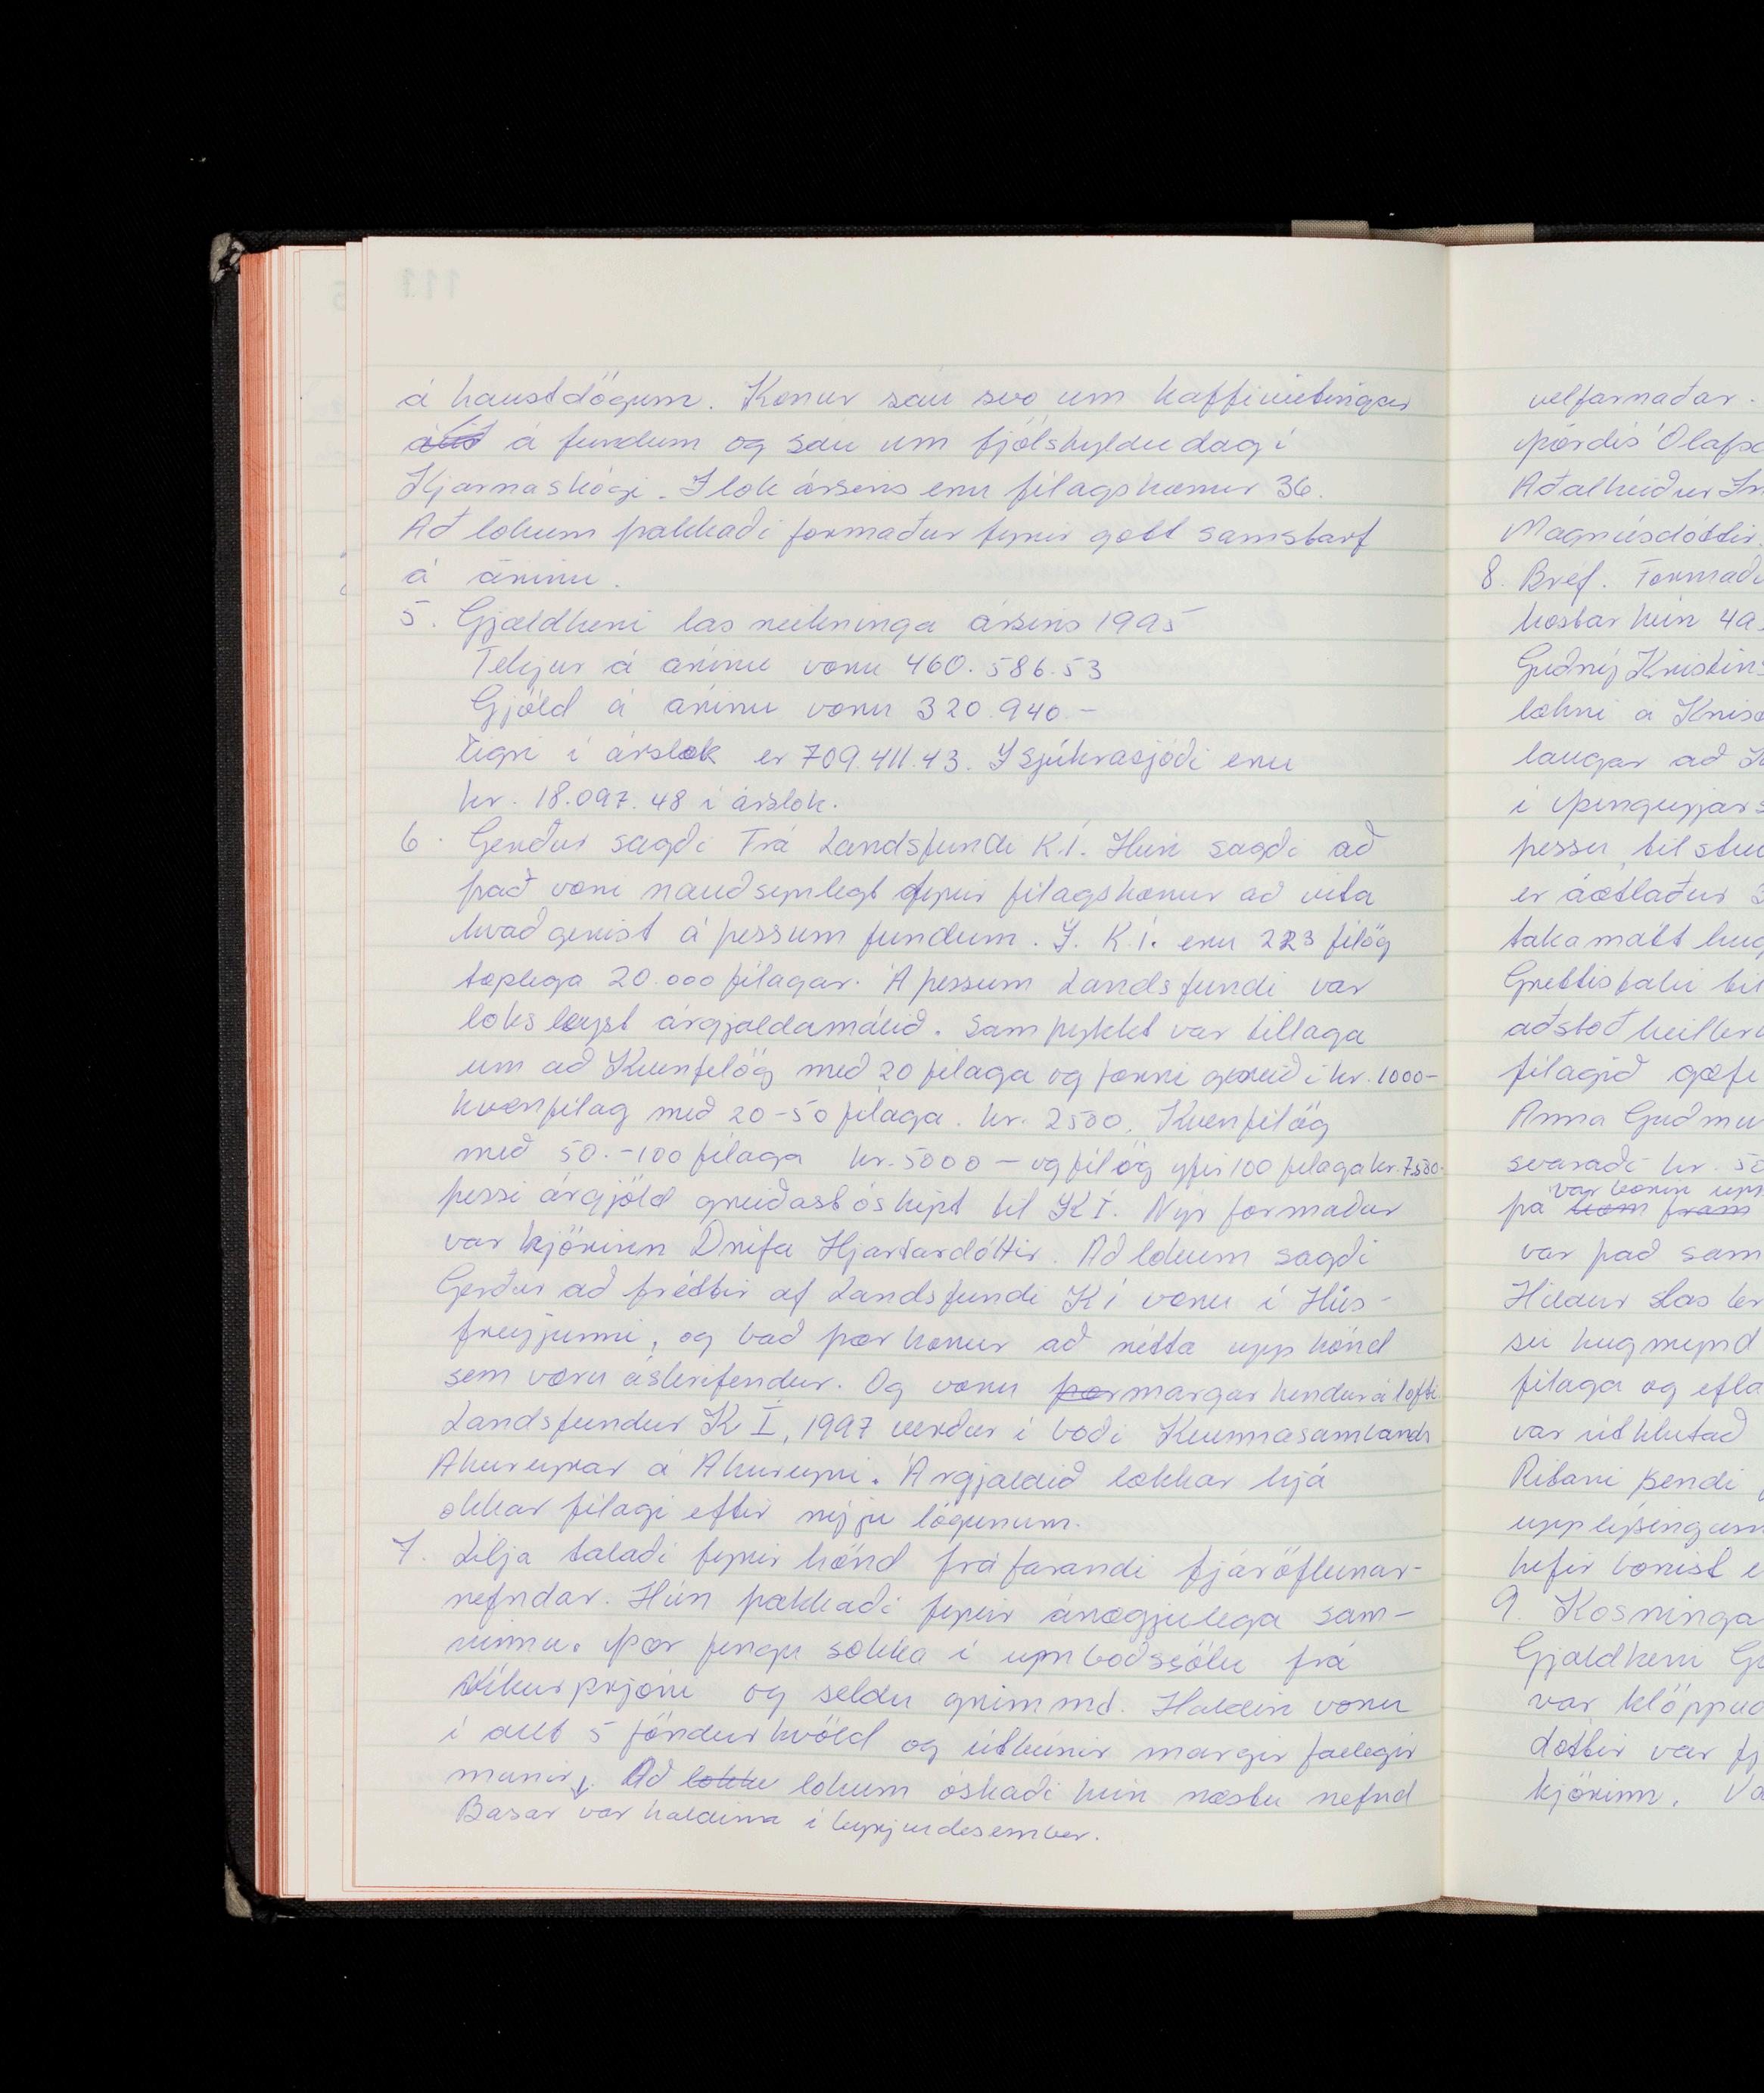 á haustdögum. Konur sáu svo um kaffiveitingar
á fundum og sáu um fjölskyldudag í
Kjarnaskógi. Í lok ársins eru félagskonur 36.
Að lokum þakkaði formaður fyrir gott samstarf
á árinu.
5. Gjaldkeri las reikninga ársins 1995
Tekjur á árinu voru 460.586.53
Gjöld á árinu voru 320.940.-
Eign í árslok er 709.411.43. Í Sjúkrasjóði eru
kr. 18.097.48 í árslok.
6. Gerður sagði frá Landsfundi K.Í. Hún sagði að
það væri nauðsynlegt fyrir félagskonur að vita
hvað gerist á þessum fundum. Í. K.Í. eru 223 félög
tæplega 20.000 félagar. Á þessum Landsfundi var
loks leyst árgjaldamálið. Samþykkt var tillaga
um að Kvenfélög með 20 félaga og færri greiði kr. 1000-
kvenfélag með 20-50 félaga. kr. 2500. Kvenfélög
með 50.-100 félaga kr. 5000 - og félög yfir 100 félaga kr. 7500-
þessi árgjöld greiðast óskipt til KÍ. Nýr formaður
var kjörinn Drífa Hjartardóttir. Að lokum sagði
Gerður að fréttir af Landsfundi KÍ væru í Hús-
freyjunni, og bað þær konur að rétta upp hönd
sem væru áskrifendur. Og voru þær margar hendur á lofti.
Landsfundur K Í, 1997 verður í boði Kvennasambands
Akureyrar á Akureyri. Árgjaldið lækkar hjá
okkar félagi eftir nýju lögunum.
7. Lilja talaði fyrir hönd fráfarandi fjáröflunar-
nefndar. Hún þakkaði fyrir ánægjulega sam-
vinnu. Þær fengu sokka í umboðssölu frá
Víkurprjóni og seldu grimmt. Haldin voru
í allt 5 föndurkvöld og útbúnir margir fallegir
munir. Að lokku lokum óskaði hún næstu nefnd
Basar var haldinn í byrjun desember.
velfarnaðar.
Þórdís Ólafs
Aðalheiður
Magnúsdóttir.
8. Bref. Formaði
kostar hún
Guðný Kristins
lækni á
laugar að
í Þingeyjars
þessu til
er áætlaður
taka mátt
Grettistaki
aðstoð
félagið gæfi
Anna Guðmu
svaraði kr. 50
var borin upp
þá kom fram
var það sam
Hildur las
sú hugmynd
félaga og efla
var úthlutað
sendi
upplýsingum
hefir borist
9. Kosninga
Gjaldkeri
var klöppuð
dóttir var
kjörinn.